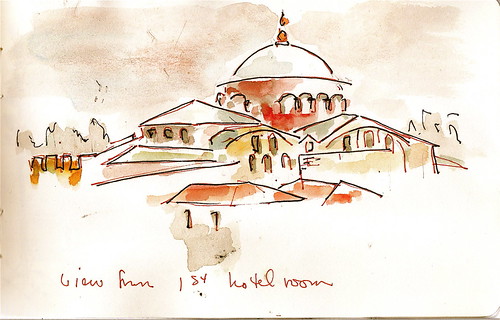 view from 1st hotel room